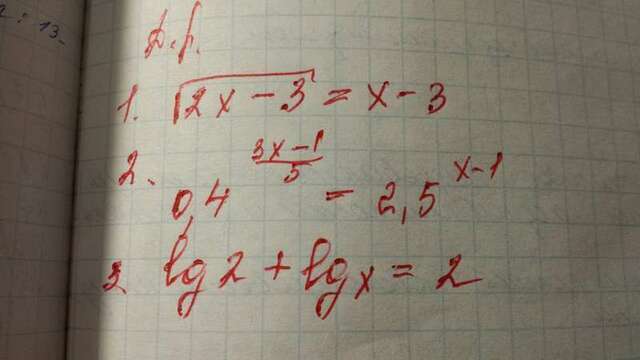 : 13.
Д.р.
1. √2x – 3 = x – 3
2. 0,4^((3x – 1)/5) = 2,5^(x – 1)
3. lg 2 + lg x = 2